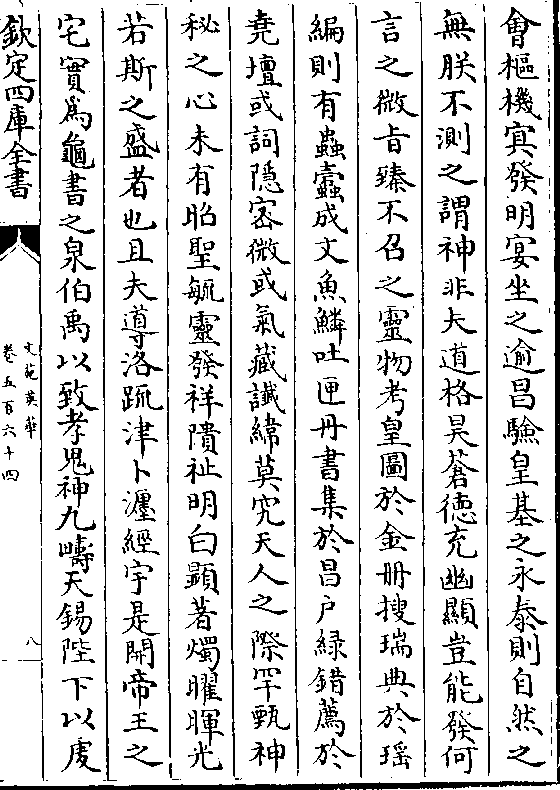 會樞機㝠發明宴坐之逾昌驗皇基之永泰則自然之
無朕不測之謂神非夫道格昊蒼德充幽顯豈能發何
言之微㫖臻不召之靈物考皇圖於金冊搜瑞典於瑶
編則有蟲蠧成文魚鱗吐匣丹書集於昌户緑錯薦於
堯壇或詞隠宻微或氣藏䜟緯莫究天人之際罕甄神
秘之心未有昭聖毓靈發祥隤祉明白顯著燭曜暉光
若斯之盛者也且夫導洛䟽津卜瀍經宇是開帝王之
宅實為龜書之泉伯禹以致孝鬼神九疇天錫陛下以䖍
欽定四庫全書
文苑英華
卷五百六十四
八